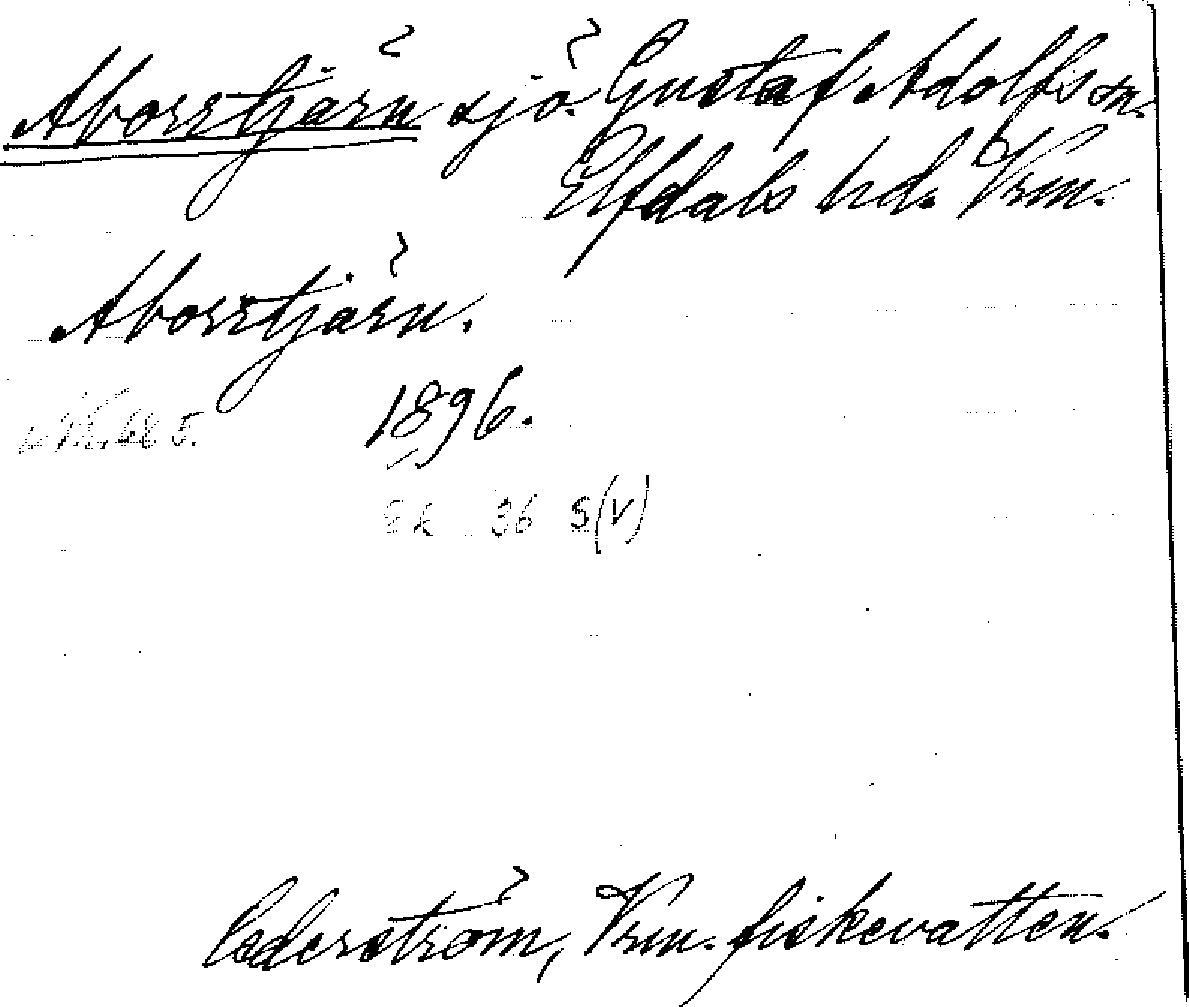 Aborrtjärn sjö. Gustaf Adolfs sn.
Elfdals hd. Vrm.
Aborrtjärn.
1896.
Ek 36 S(V)
Cederström, Vrm. fiskevatten.